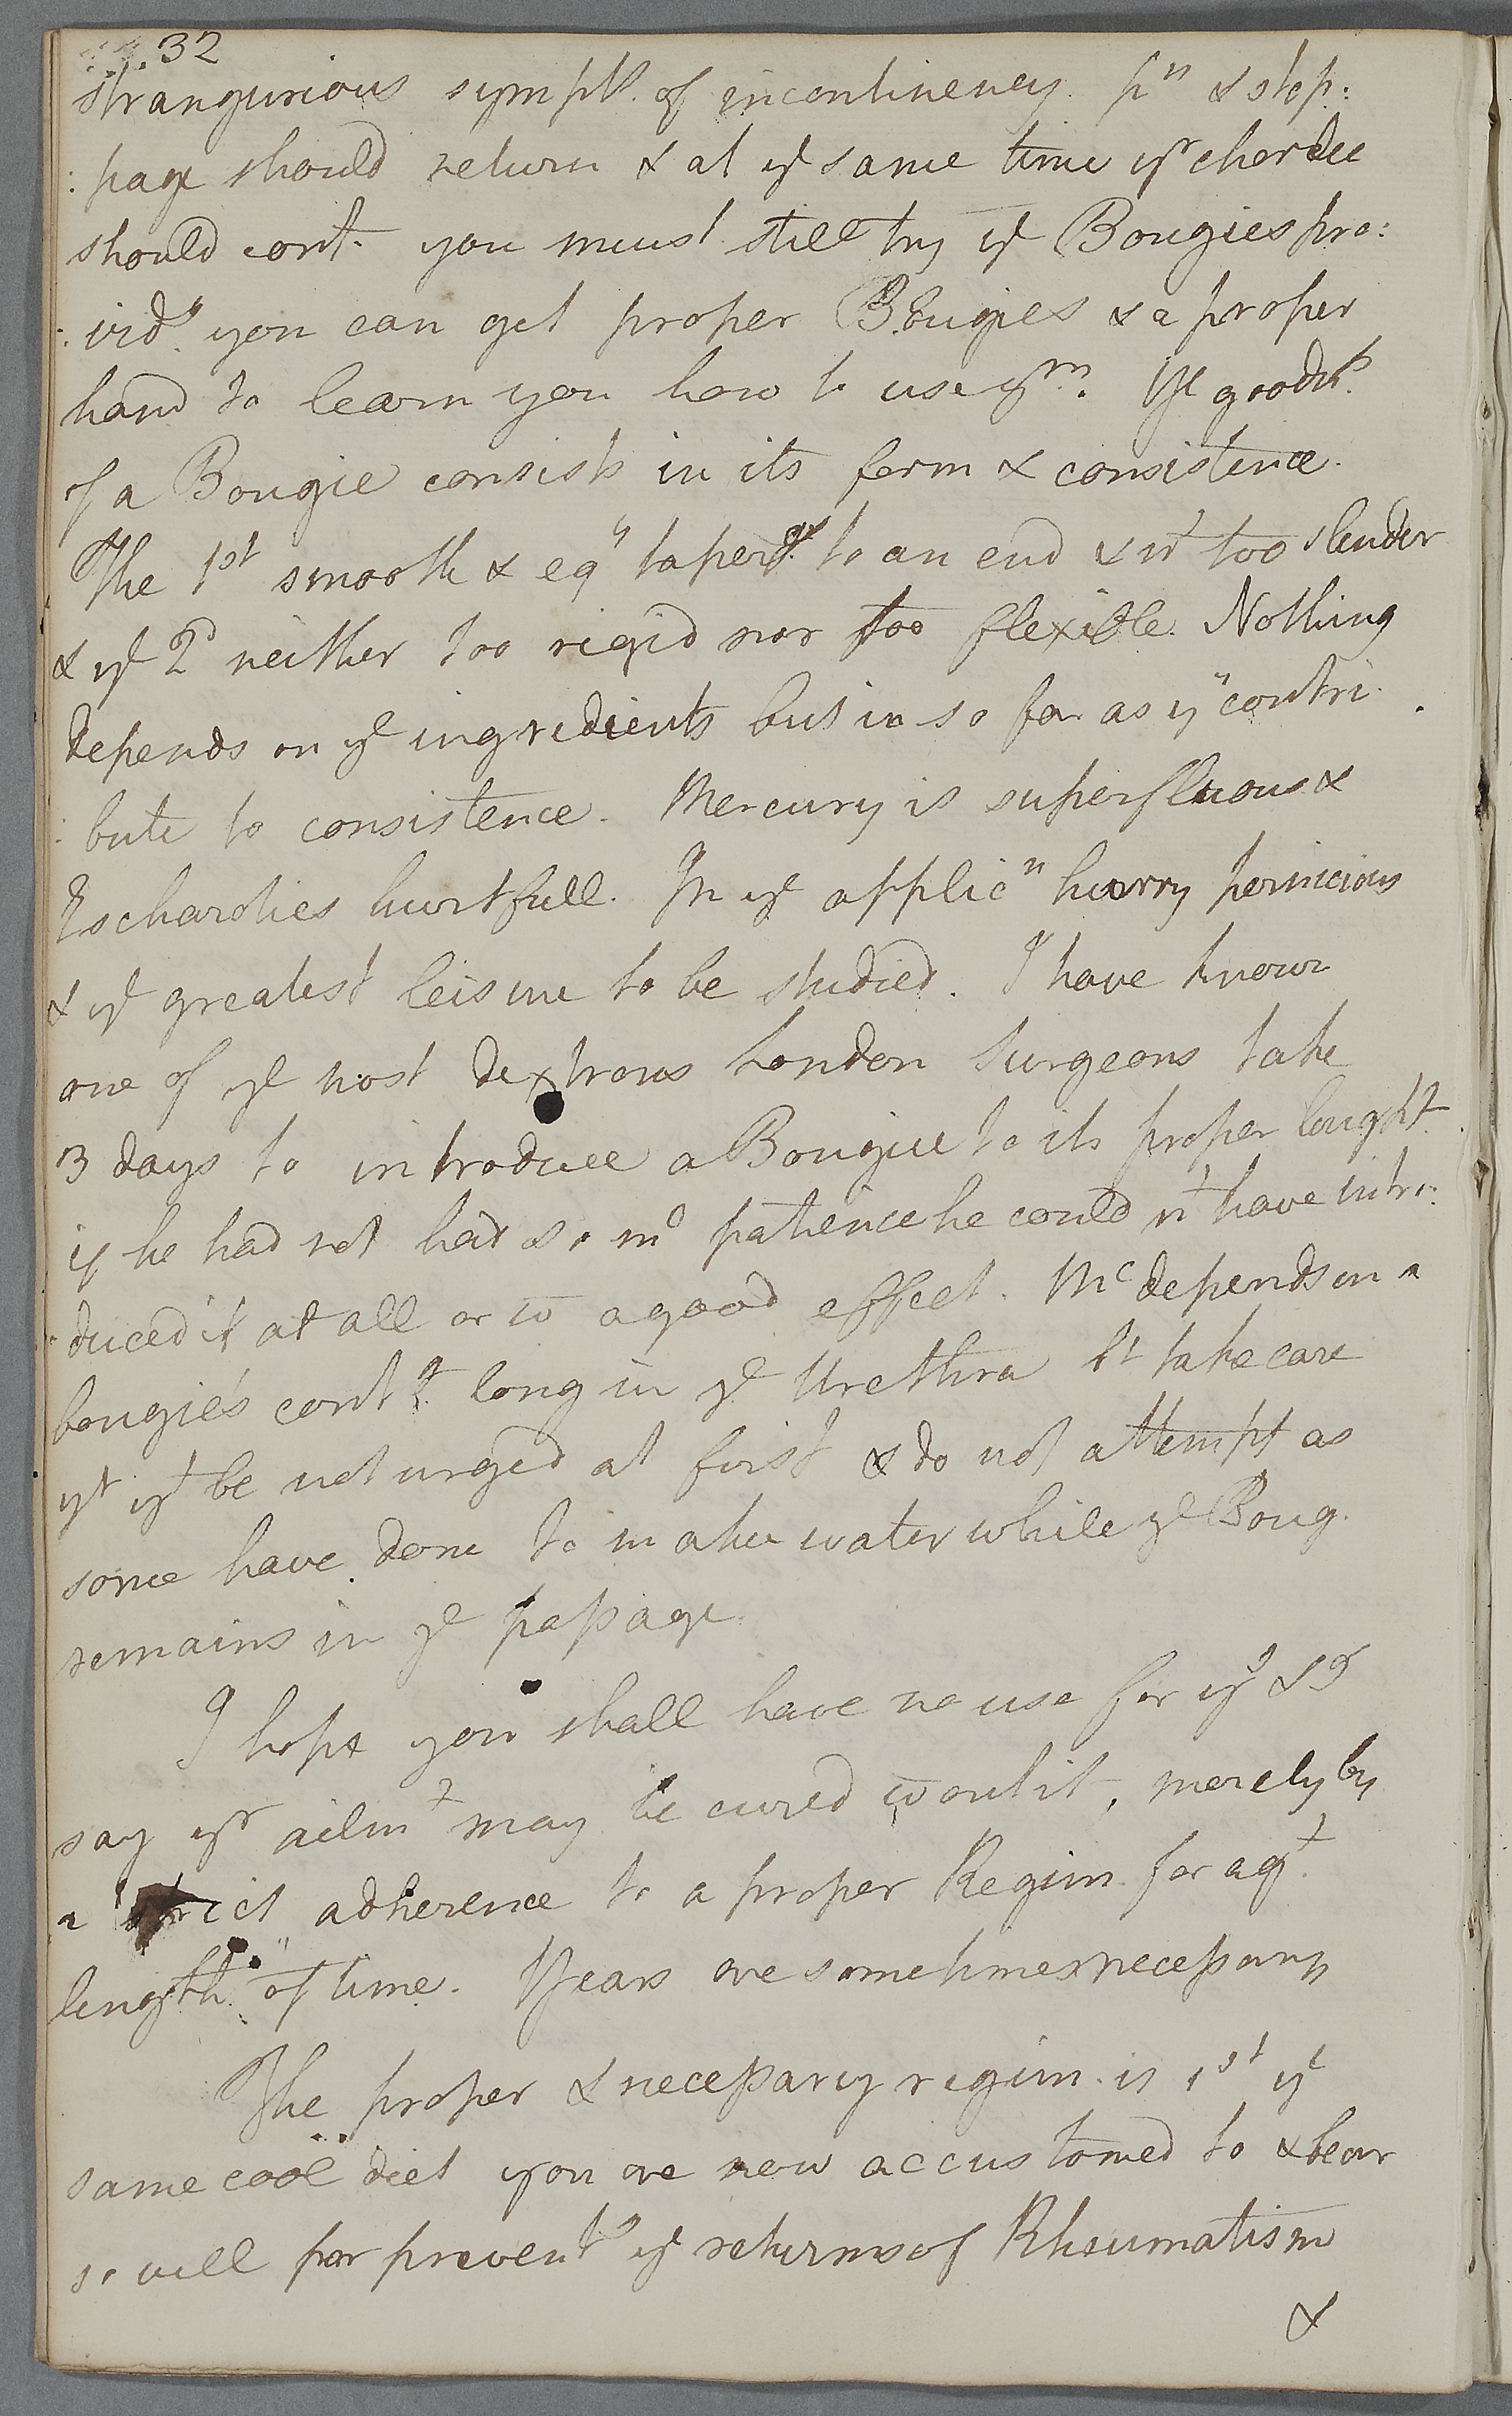 32
strangurious sympts. of incontinency. pn & stop:
:page should return & at ye same time yr chordee
should cont. you must still try ye Bougies pro:
:vidg you can get proper Bougies & a proper
hand to learn you how to use ym. Ye goodns.
of a Bougie consists in its form & consistence.
The 1st smooth & eqy taperg. to an end & nt too slender
& ye 2d neither too rigid nor too flexible. Nothing
depends on ye ingredients but in so far as yy contri.
:bute to consistence. Mercury is superfluous &
Escharotics hurtfull. In ye applicn hurry pernicious
& ye greatest leisure to be studied. I have known
one of ye most dextrous London Surgeons take
3 days to introduce a Bougie to its proper lenght
if he had not had so mo patience he could nt have intro:
:duced it at all or wt a good effect. Mc depends on a
bougie's contg. long in ye Urethra bt take care
yt yt be not urged at first & do not attempt as
some have done to make water while ye Boug.
remains in ye passage.
I hope you shall have no use for ys & I
say yr ailmt may be cured wtout it, merely by
a strict adherence to a proper Regim. for a gt.
length of time. Years are sometimes necessary
The proper & necessary regim. is 1st ye
same cool diet you are now accustomed to & bear
so well for preventg ye returns of Rheumatism
&